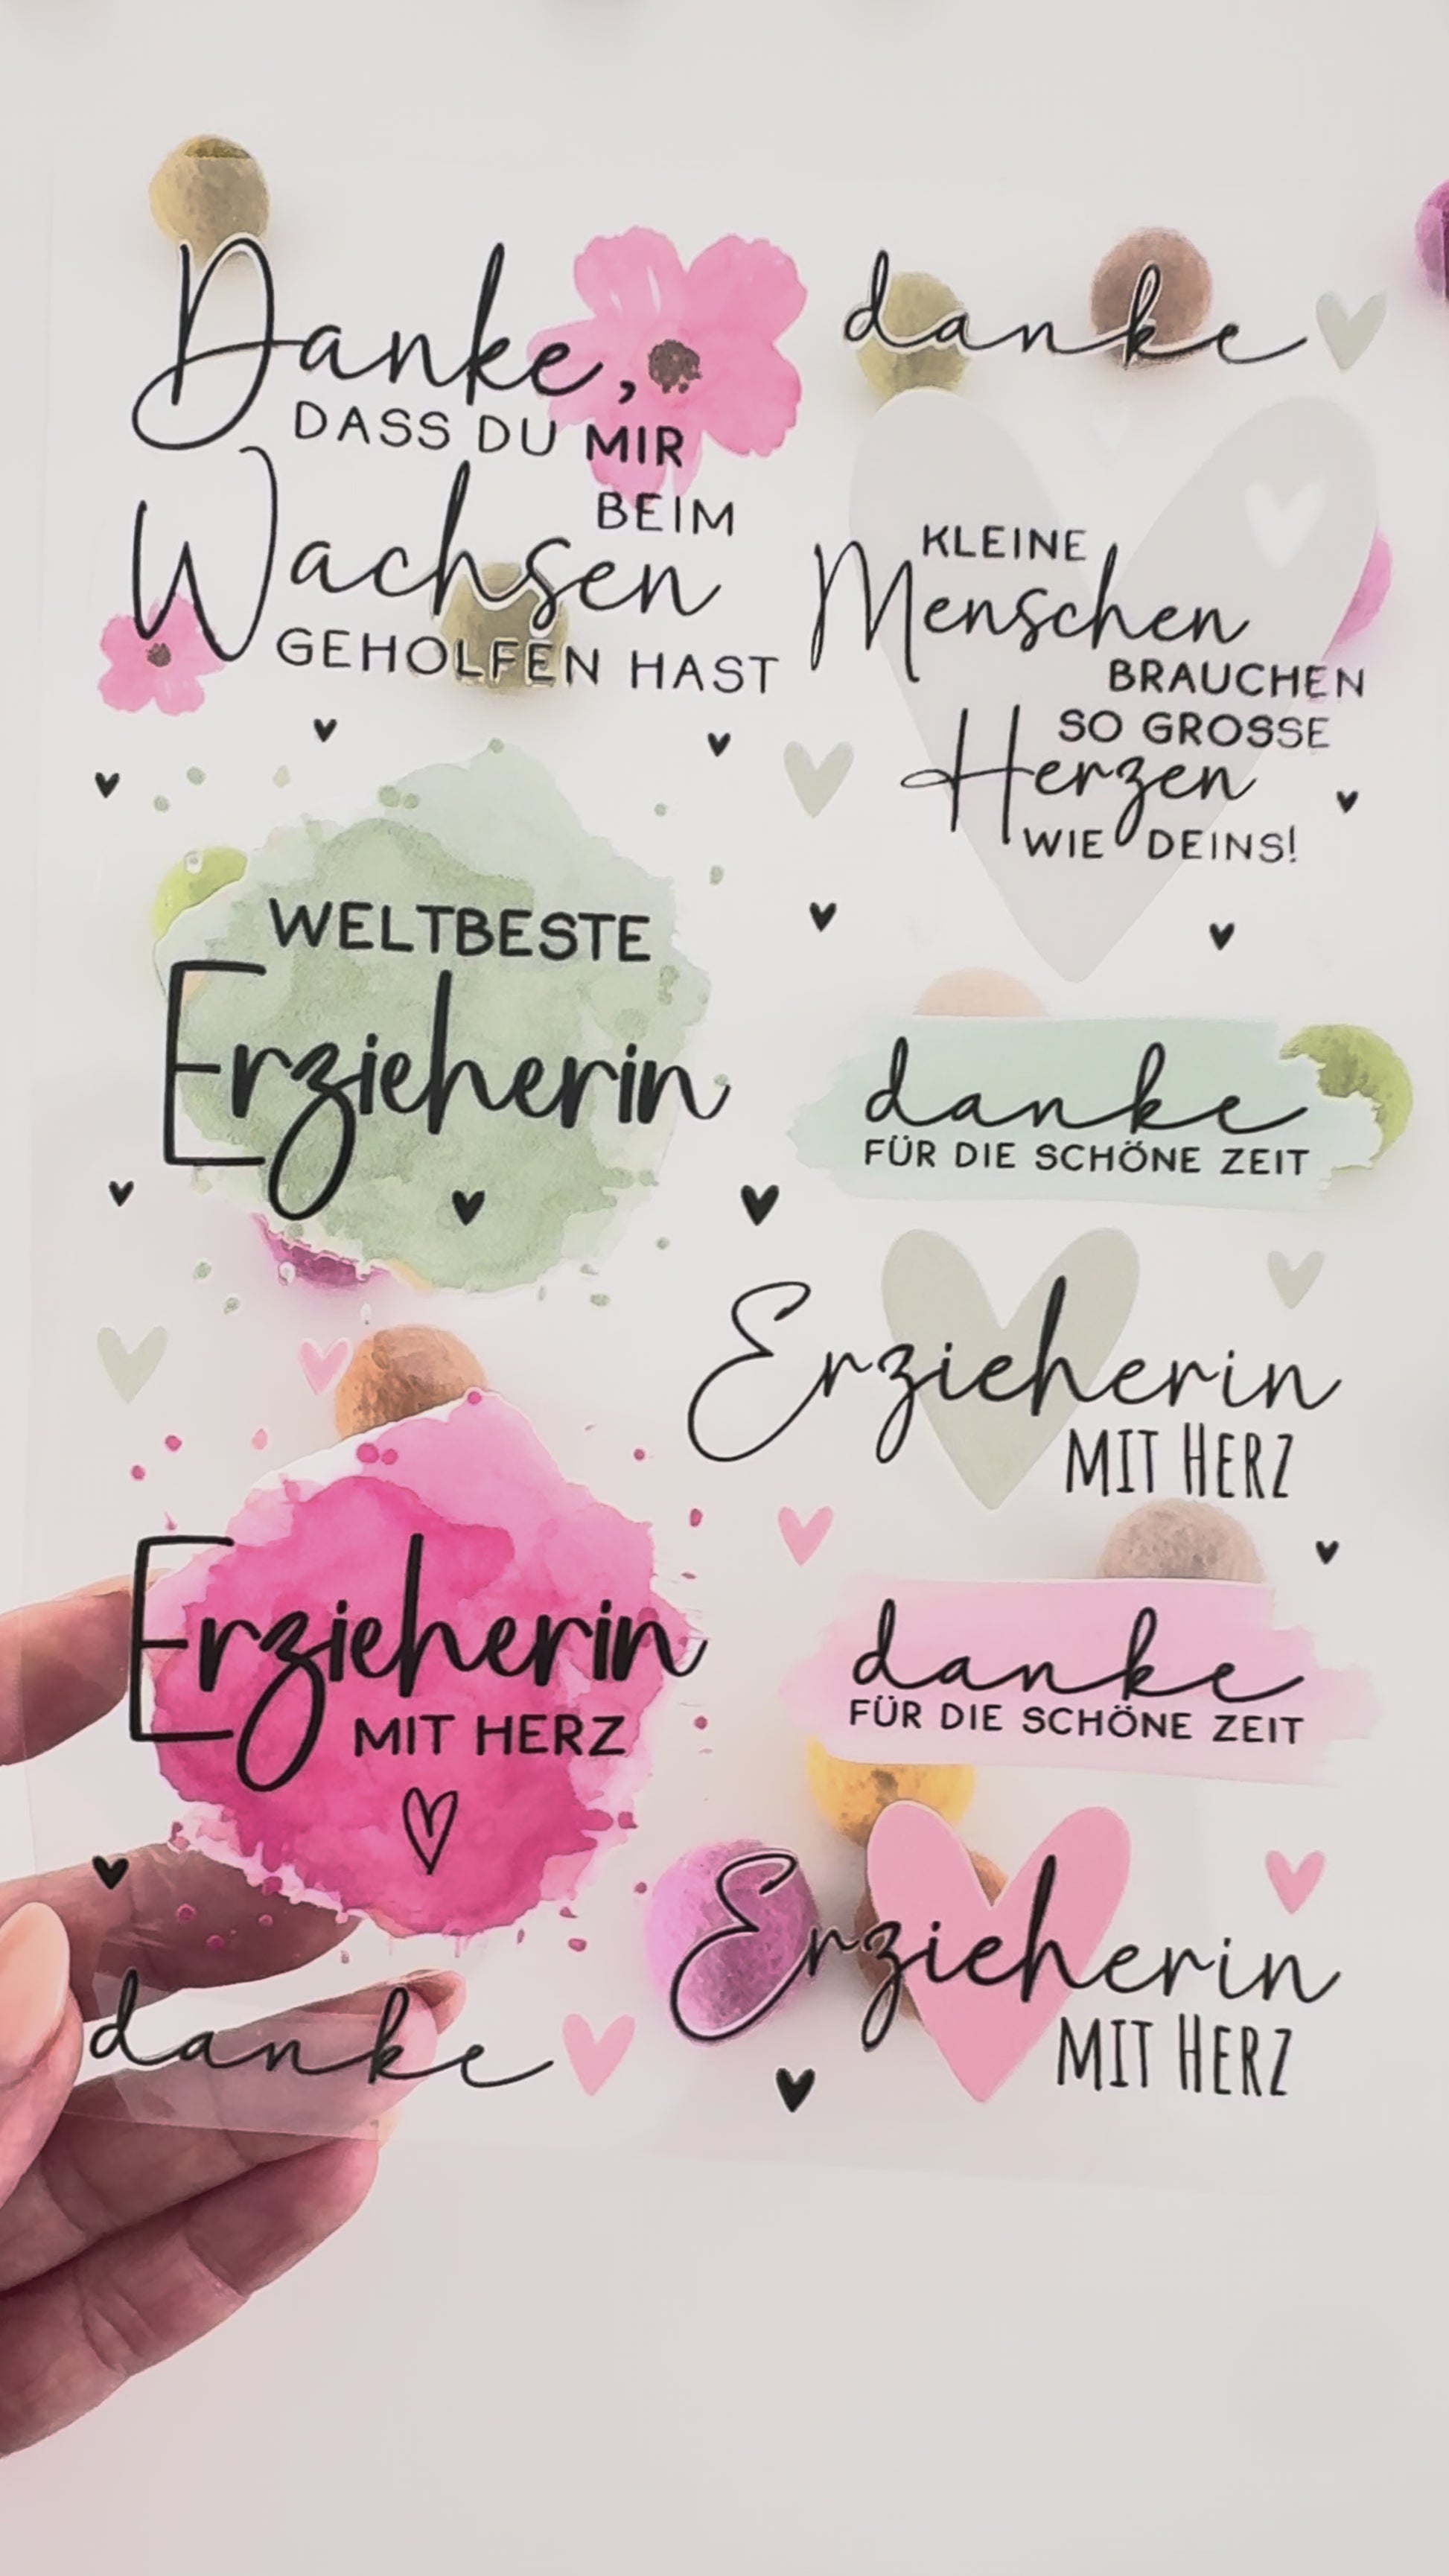 Danke,
DASS DU MIR
BEIM
Wachsen
GEHOLFEN HAST
danke
KLEINE
Menschen
BRAUCHEN
SO GROSSE
Herzen
WIE DEINS!
WELTBESTE
Erzieherin
danke
FÜR DIE SCHÖNE ZEIT
Erzieherin
MIT HERZ
Erzieherin
MIT HERZ
danke
FÜR DIE SCHÖNE ZEIT
danke
Erzieherin
MIT HERZ